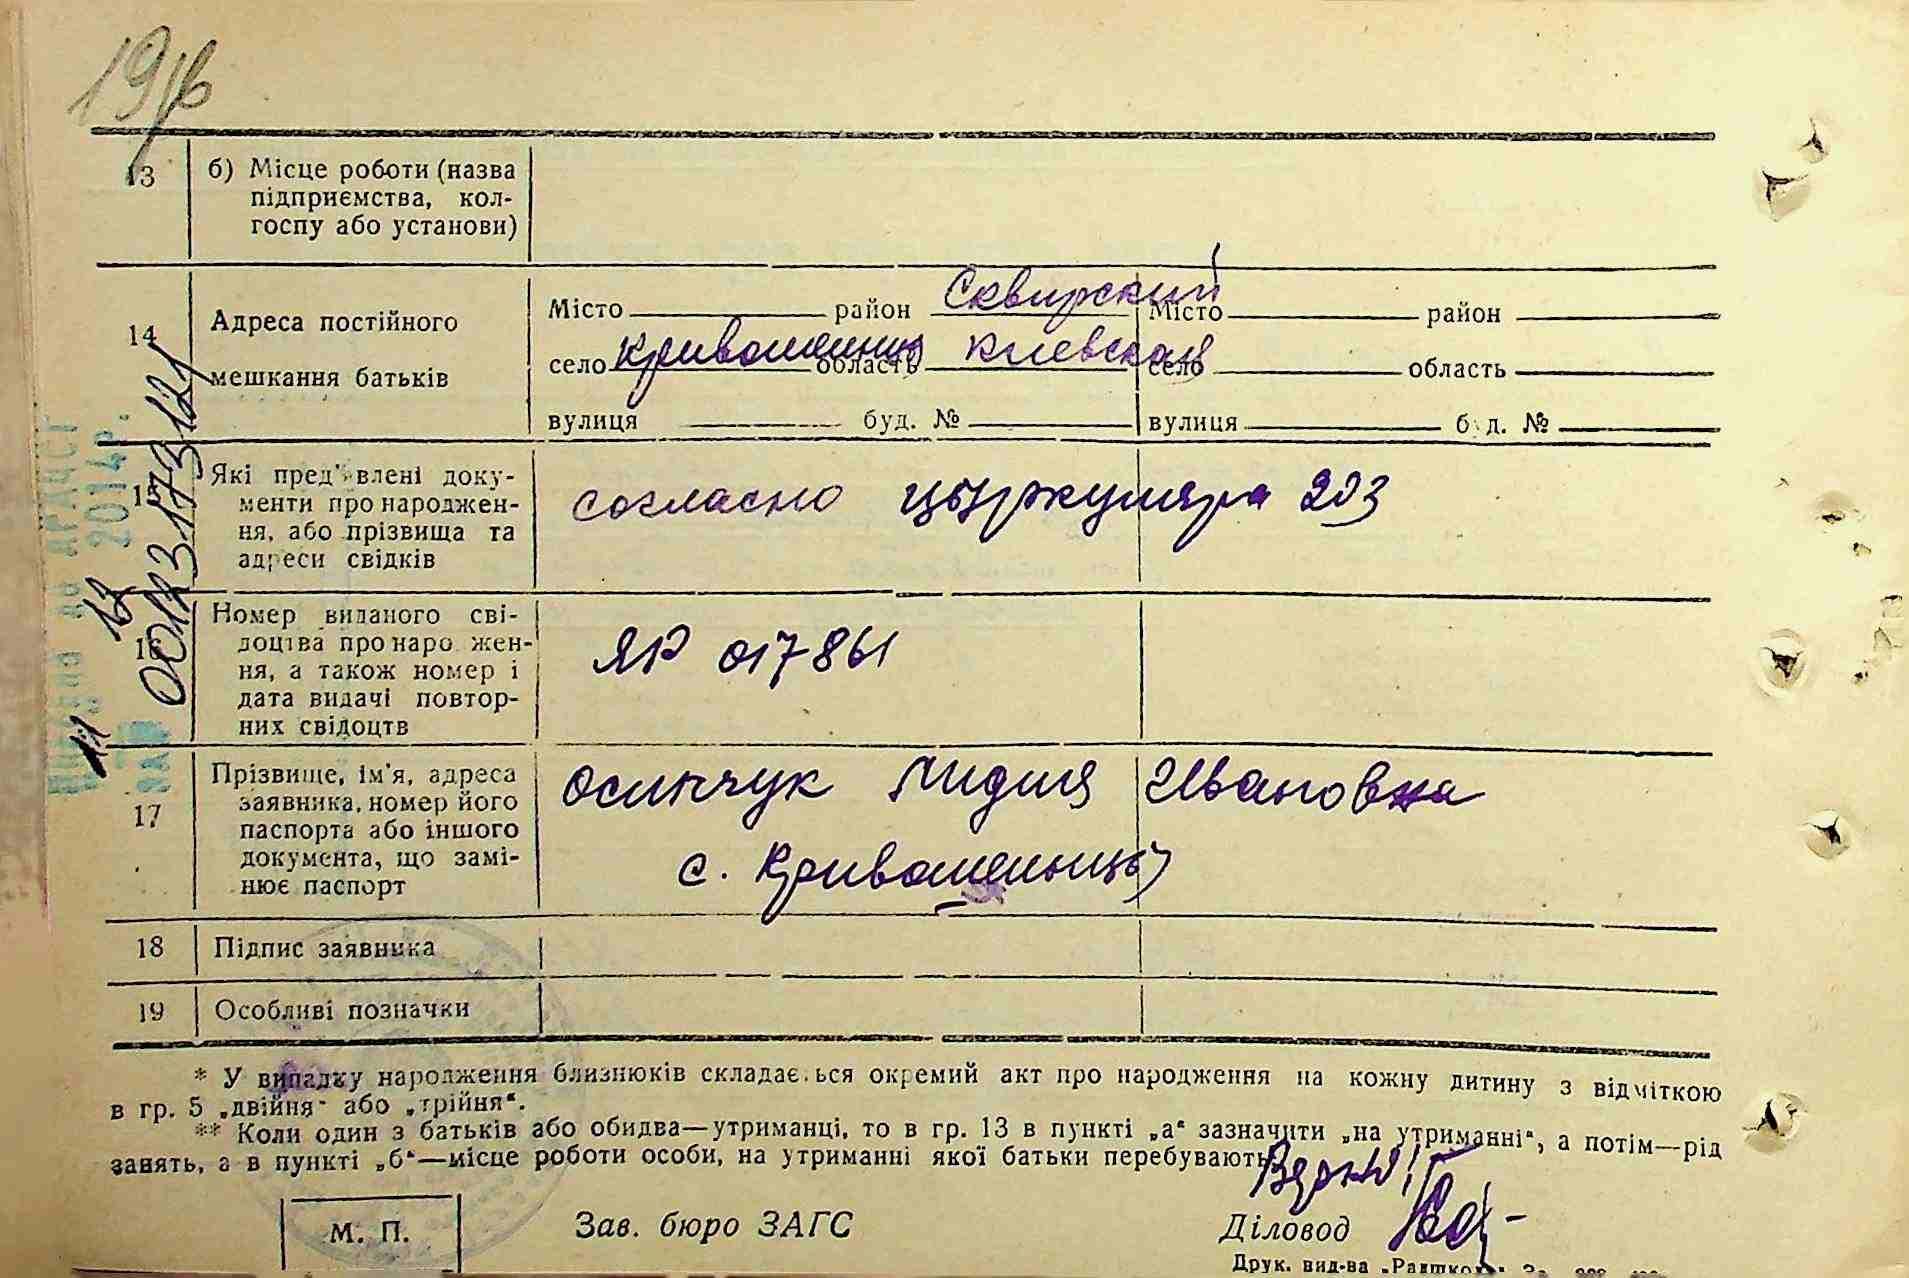 13 б) Місце роботи (назва
підприємства, кол-
госпу або установи)
14 Адреса постійного
мешкання батьків
Місто район Сквирский Місто район
село Кривошеинцы область Киевская село область
вулиця буд. № вулиця буд. №
Які пред'явлені доку-
менти про народжен-
ня, або прізвища та
адреси свідків
согласно циркуляра 203
16 Номер виданого сві-
доцтва про народжен-
ня, а також номер і
дата видачі повтор-
них свідоцтв
ЯР 017861
17 Прізвище, ім'я, адреса
заявника, номер його
паспорта або іншого
документа, що замі-
нює паспорт
Осипчук Лидия Ивановна
с. Кривошеинцы
18 Підпис заявника
19 Особливі позначки
* У випадку народження близнюків складається окремий акт про народження на кожну дитину з відміткою
в гр. 5 „двійня“ або „трійня“.
** Коли один з батьків або обидва—утриманці, то в гр. 13 в пункті „а“ зазначити „на утриманні“, а потім—рід
занять, а в пункті „б“—місце роботи особи, на утриманні якої батьки перебувають.
М. П. Зав. бюро ЗАГС Діловод
Друк. вид-ва „Радшкола“
2014р.